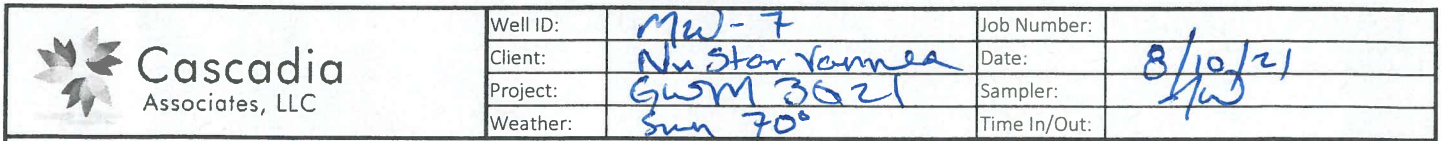 Cascadia
Associates, LLC
Well ID: MW-7 Job Number:
Client: NuStar Date: 8/10/21
Project: GWM 3Q21 Sampler:
Weather: Sun 70° Time In/Out: